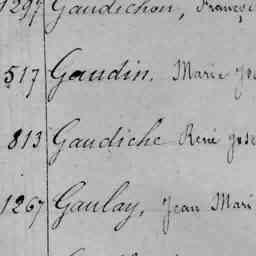 1297 Gaudichon, Franç
517 Gaudin, Marie Jos
813 Gaudiche René Jose
1267 Gaulay, Jean Mari